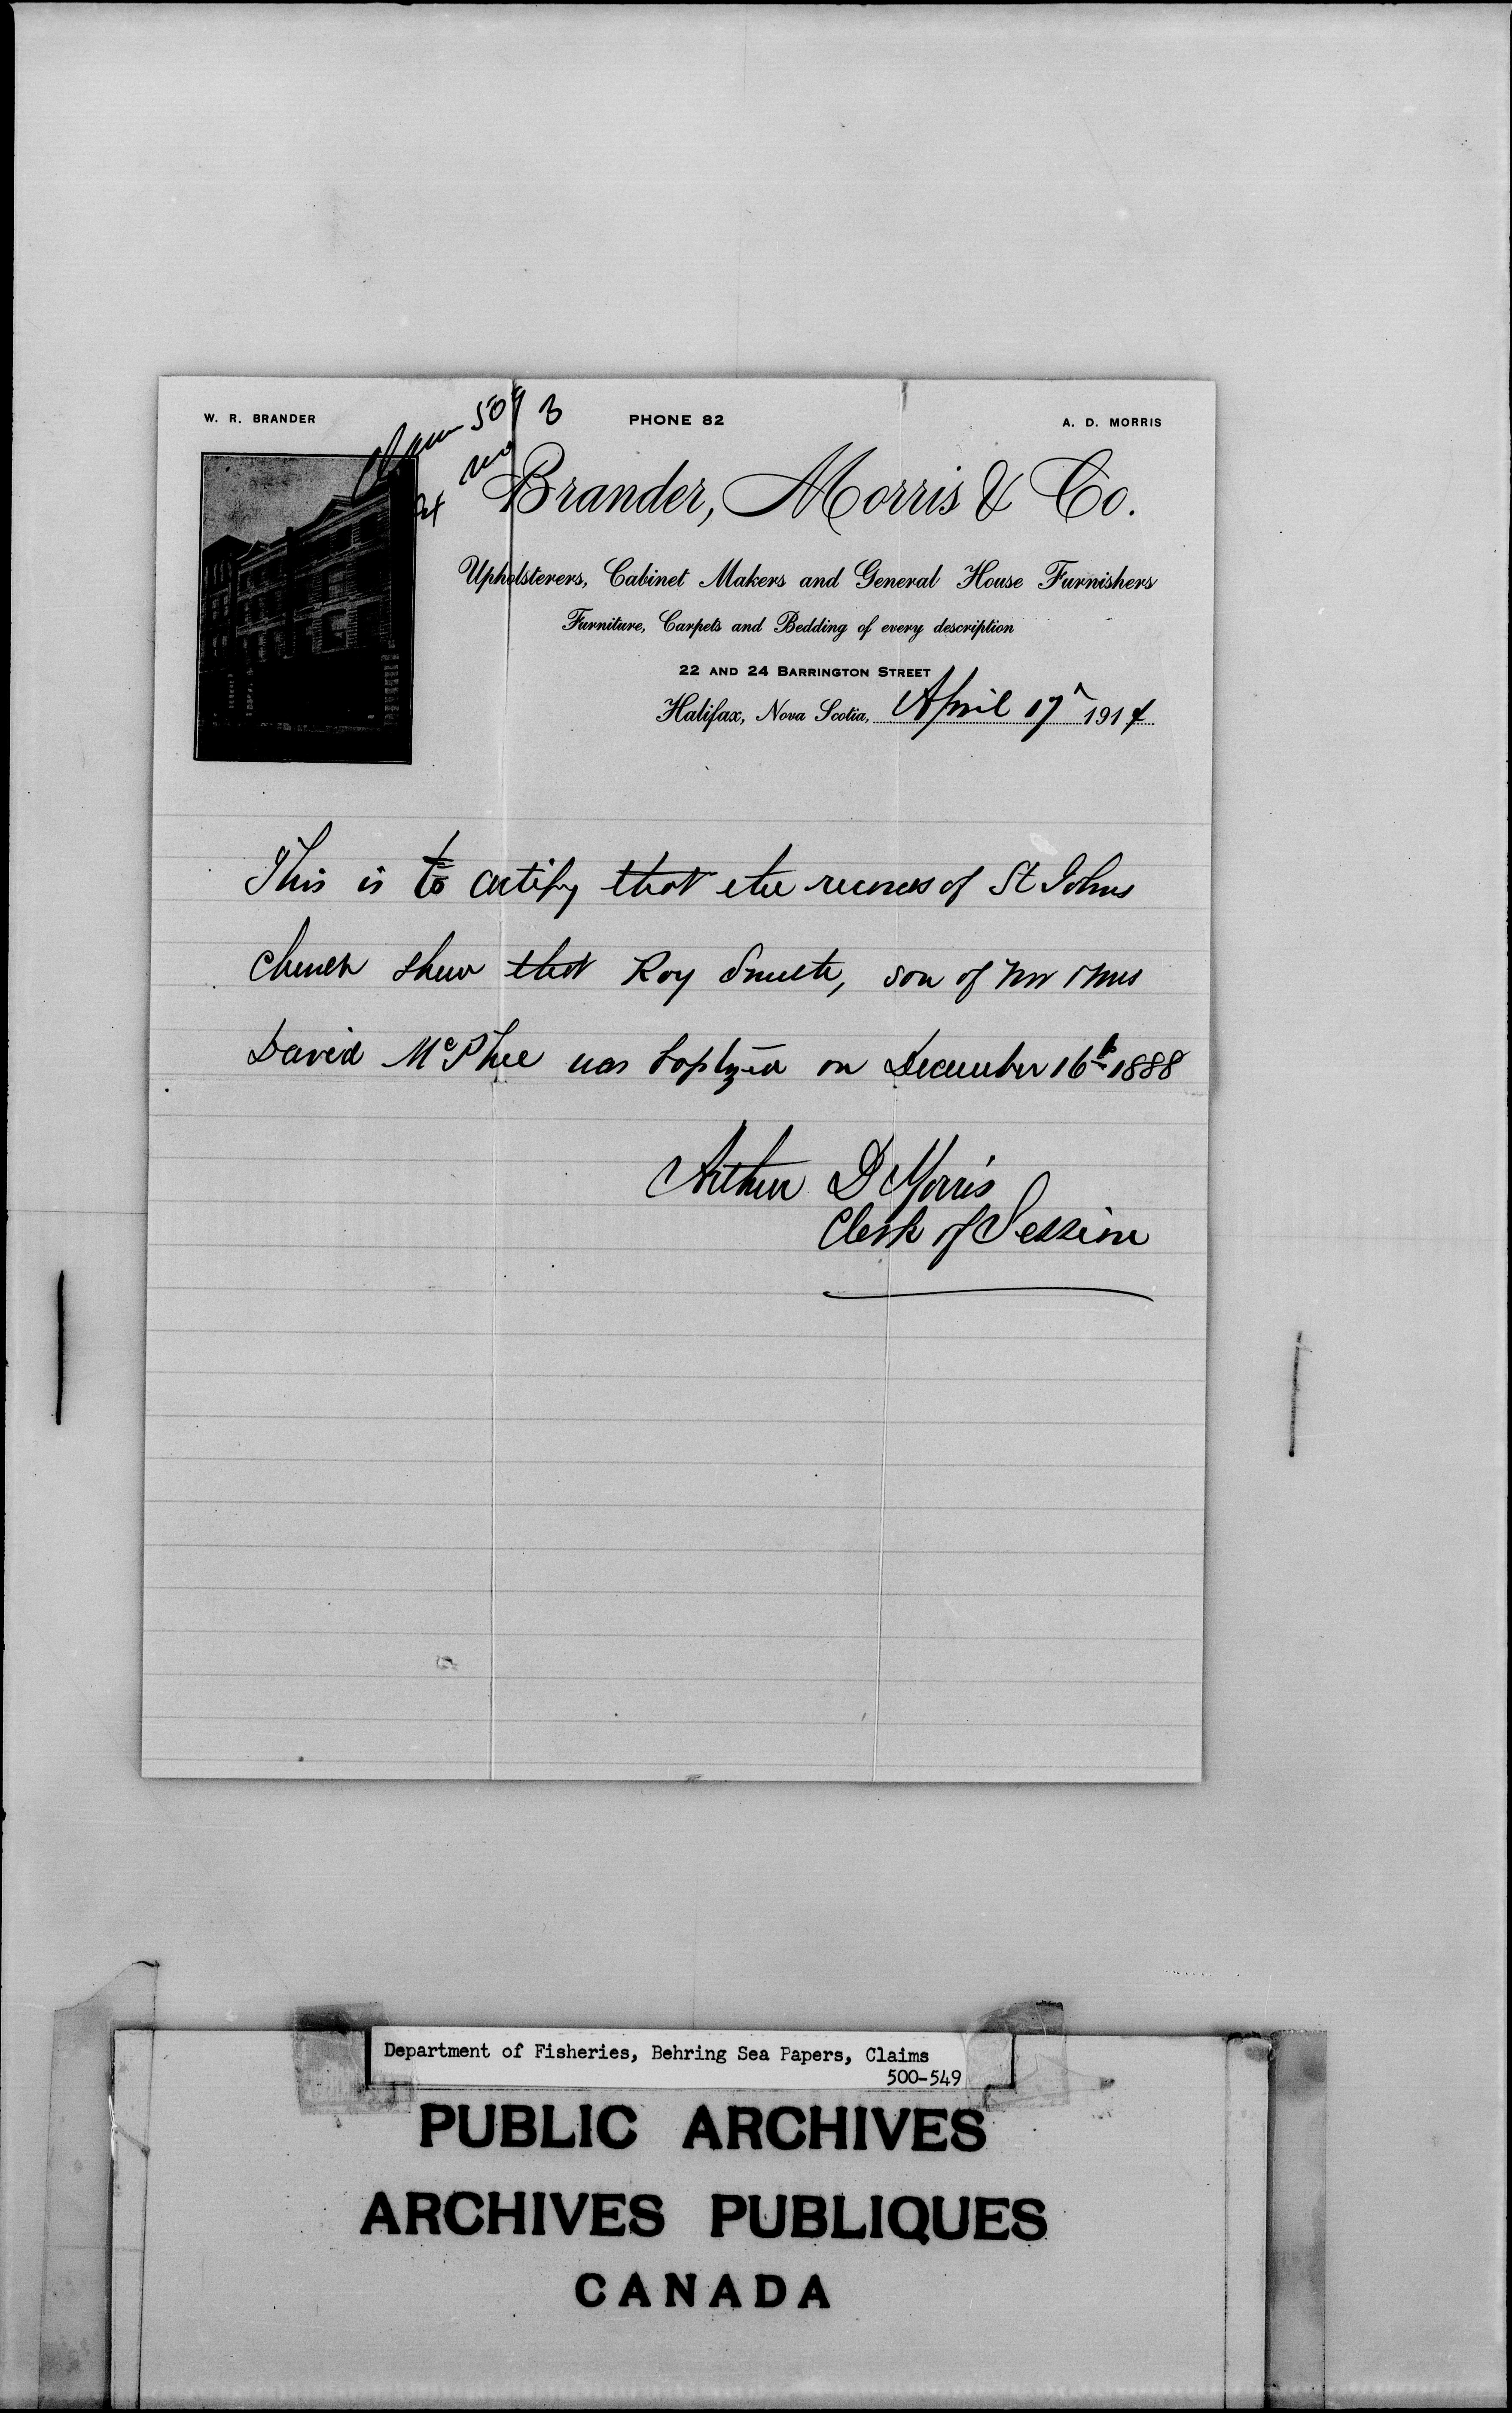 W. R. BRANDER
PHONE 82
A. D. MORRIS
Claim 509
Ex no 3
Brander, Morris & Co.
Upholsterers, Cabinet Makers and General House Furnishers
Furniture, Carpets and Bedding of every description
22 AND 24 BARRINGTON STREET
Halifax, Nova Scotia, April 17th 1914
This is to certify that the records of St Johns
church shew that Roy Smith, son of Mr & Mrs
David McPhee was baptized on December 16th 1888
Arthur D Morris
Clerk of Session
Department of Fisheries, Behring Sea Papers, Claims
500-549
PUBLIC ARCHIVES
ARCHIVES PUBLIQUES
CANADA